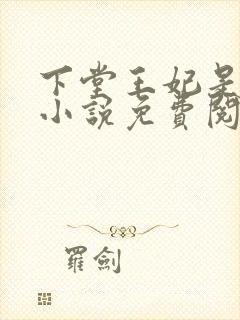 下堂王妃
小說免費閱
羅劍